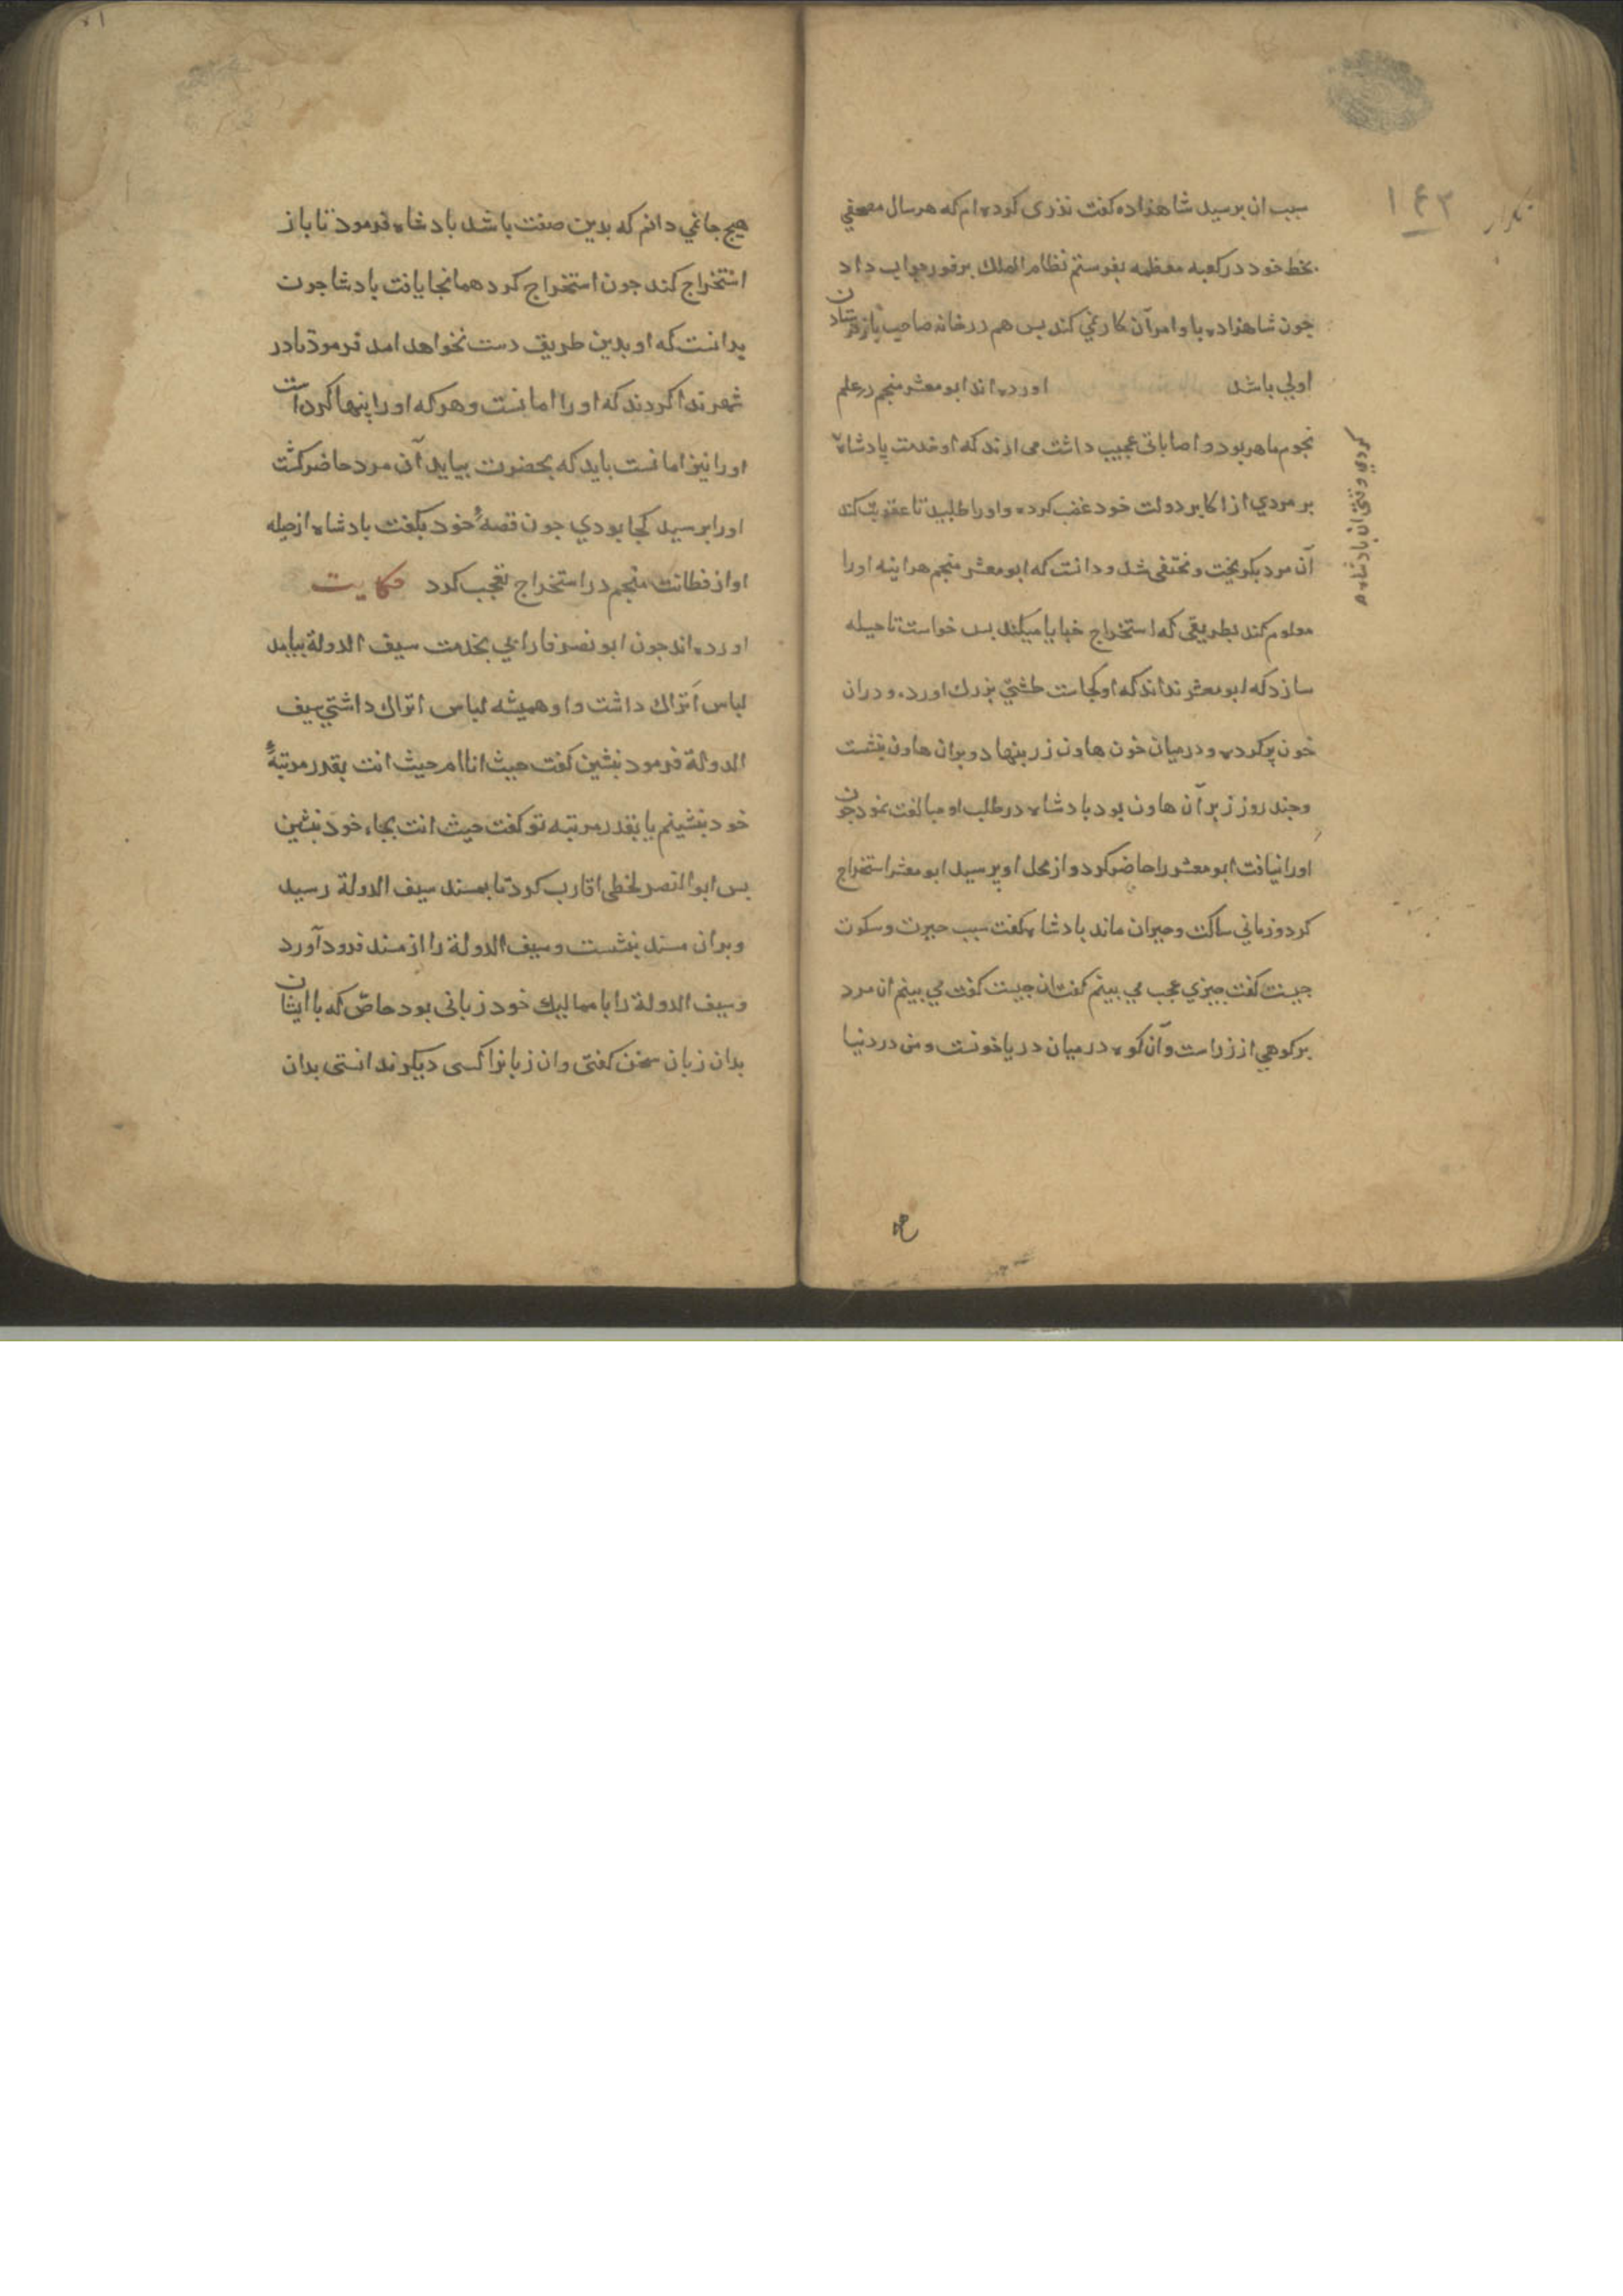 ۱۴۳
سبب ان برسید شاهزاده کفت نذری کرده ام که هر سال مصحفی
بخط خود در کعبه معظمه بفرستم نظام الملک بر فور جواب داد
جون شاهزاده با وامر آن کار نمی کند بس هم در خانه صاحب باز فرستادن
اولی باشد اورده اند ابو معشر منجم در علم
نجوم ماهر بود و اصاباتی عجیب داشت می ارند که او خدمت پادشاه
بر مردی از اکابر دولت خود غضب کرده و اورا طلبید تا عقوبت کند
آن مرد بکریخت و مختفی شد و دانت که ابو معشر منجم هراینه اورا
معلوم کند بطریقی که استخراج خبایا میکند بس خواست تا حیله
سازد که ابو معشر نداند که او کجاست طشتی بزرك اورد و در ان
خون پر کرده و در میان خون هاون زر بنهاد و بران هاون بنشست
وجند روز زبر آن هاون بود بادشاه در طلب او مبالغت نمود جون
اورا نیافت ابو معشر را حاضر کرد و از محل او پرسید ابو معشر استخراج
کرد و زمانی ساکت و حیران ماند بادشاه کفت سبب حیرت و سکوت
جیست کفت جیزی عجب می بینم کفت ان جیست کفت می بینم ان مرد
بر کوهی از زر است و آن کوه در میان دریا خونست و من در دنیا
هیج جائی دانم که بدین صفت باشد بادشاه فرمود تا باز
استخراج کند جون استخراج کرد همانجا یافت بادشا جون
بدانست که او بدین طریق دست نخواهد امد فرمود تا در
شهر ندا کردند که اورا امانست و هر که اورا پنها کرد است
اورا نیز امانست باید که بحضرت بیاید آن مرد حاضر کشت
اورا برسید کجا بودی جون قصهٔ خود بکفت بادشاه از حیله
او از فطانت منجم در استخراج تعجب کرد حکایت
اورده اند جون ابو نصر فارابی بخدمت سیف الدولة بیامد
لباس اَتراك داشت و او همیشه لباس اتراك داشتی سیف
الدولة فرمود بنشین کفت حیث انا ام حیث انت بقدر مرتبهٔ
خود بنشینم یا بقدر مرتبه تو کفت حیث انت بجاء خود بنشین
بس ابو النصر تخطی اقارب کرد تا بمسند سیف الدولة رسید
وبران مسند بنشست و سیف الدولة را از مسند فرود آورد
وسیف الدولة را با ممالیك خود زبانی بود خاص که با ایشان
بدان زبان سخن کفتی و ان زبانرا کسی دیکر ندانستی بدان